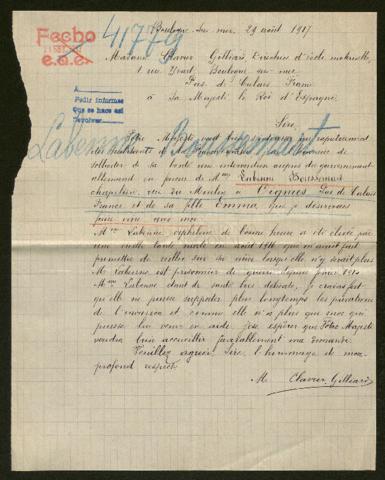 Fecho
e.a.e.
41779
Boulogne sur mer, 29 août 1917
Madame Clavier Gilliard, Directrice d'école maternelle,
1 rue Boulogne sur mer
Pas de Calais France
à Sa Majesté le Roi d'Espagne,
A
Pedir informes
Que se hace así
Devolver
Sire,
Votre Majesté
Labenne Boussemart
solliciter de sa bonté une intervention auprès du gouvernement
allemand en faveur de Mme Labenne Boussemart
chapelière, rue du Moulin à Vignies Pas de Calais
France et de sa fille Emma, que je désirerais
faire venir avec moi.
Mme Labenne, orpheline de bonne heure a été élevée par
une vieille tante morte en août 1916 que m'avait fait
promettre de veiller sur sa nièce lorsqu'elle n'y serait plus
M. Labenne est prisonnier de guerre depuis
Mme Labenne étant de santé très délicate, je crains fort
qu'elle ne puisse supporter plus longtemps les privations
de l'invasion et comme elle n'a plus que moi qui
puisse lui venir en aide, j'ose espérer que Votre Majesté
voudra bien accueillir favorablement ma demande.
Veuillez agréer, Sire, l'hommage de mon
profond respect.
M. Clavier Gilliard